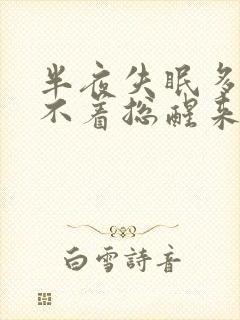 半夜失眠多
不着总醒来
白雪詩音